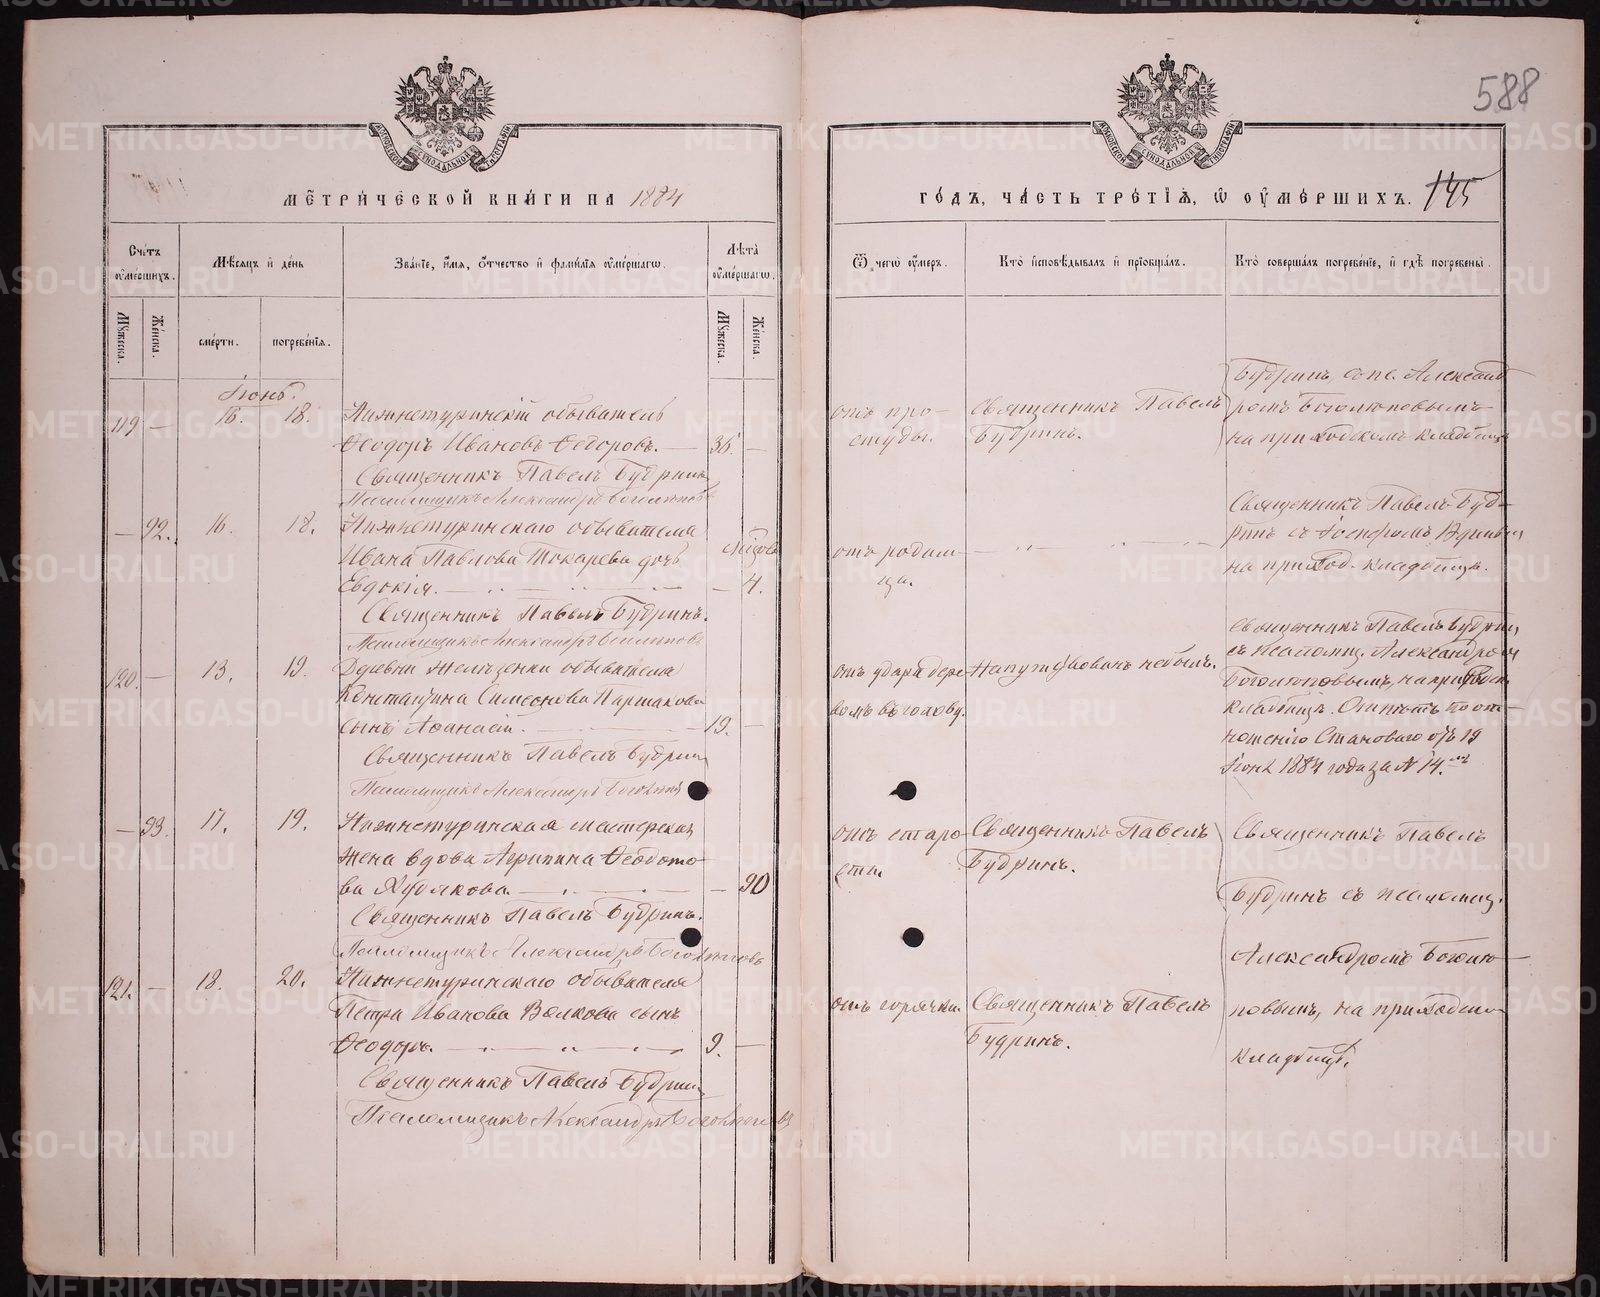 588
МЕТРИЧЕСКОЙ КНИГИ НА 1884
ГОДЪ, ЧАСТЬ ТРЕТІЯ, Ѡ ОУМЕРШИХЪ. 145
Счетъ оумершихъ.
Мѣсяцъ и день
Званіе, имя, отчество и фамилія оумершагѡ.
Лѣта оумершагѡ.
Ѿ чегѡ оумеръ.
Кто исповѣдывалъ и пріобщалъ.
Кто совершалъ погребеніе, и гдѣ погребены.
Мужеска.
Женска.
смерти.
погребенія.
Мужеска.
Женска.
Іюнь.
119 — 16. 18. Нижнетуринскій обыватель
Ѳеодоръ Ивановъ Ѳедоровъ. — 36. —
Священникъ Павелъ Будринъ
Псаломщикъ Александръ Боголюповъ
отъ про-
студы.
Священникъ Павелъ
Будринъ.
Будринъ, съ пс. Александ
ромъ Боголюповымъ
на приходскомъ кладбищѣ
— 92. 16. 18. Нижнетуринскаго обывателя
Ивана Павлова Токарева дочь
Евдокія. — — 4.
мѣсяца
Священникъ Павелъ Будринъ.
Псаломщикъ Александръ Боголюповъ
отъ родим-
ца.
Священникъ Павелъ Буд-
ринъ съ
на приход. кладбищѣ.
120. — 13. 19. Деревни Желѣзенки обывателя
Константина Симеонова Паршакова
сынъ Аѳанасій. — 19. —
Священникъ Павелъ Будринъ
Псаломщикъ Александръ Боголюповъ
отъ удара дере-
вомъ въ голову.
Напутствованъ не былъ.
Священникъ Павелъ Будринъ
съ Псаломщ. Александромъ
Боголюповымъ, на приходск.
кладбищѣ. Отпѣтъ по от-
ношенію Становаго отъ 19
Іюня 1884 года за № 14.
— 93. 17. 19. Нижнетуринская мастерская
жена вдова Агрипина Ѳеодото-
ва Худякова — — 90
Священникъ Павелъ Будринъ.
Псаломщикъ Александръ Боголюповъ
отъ старо-
сти.
Священникъ Павелъ
Будринъ.
Священникъ Павелъ
Будринъ съ псаломщ.
Александромъ Боголю-
повымъ, на приходском
кладбищѣ.
121. — 18. 20. Нижнетуринскаго обывателя
Петра Иванова Волкова сынъ
Ѳеодоръ. — 9. —
Священникъ Павелъ Будринъ
Псаломщикъ Александръ Боголюповъ
отъ горячки.
Священникъ Павелъ
Будринъ.
METRIKI.GASO-URAL.RU